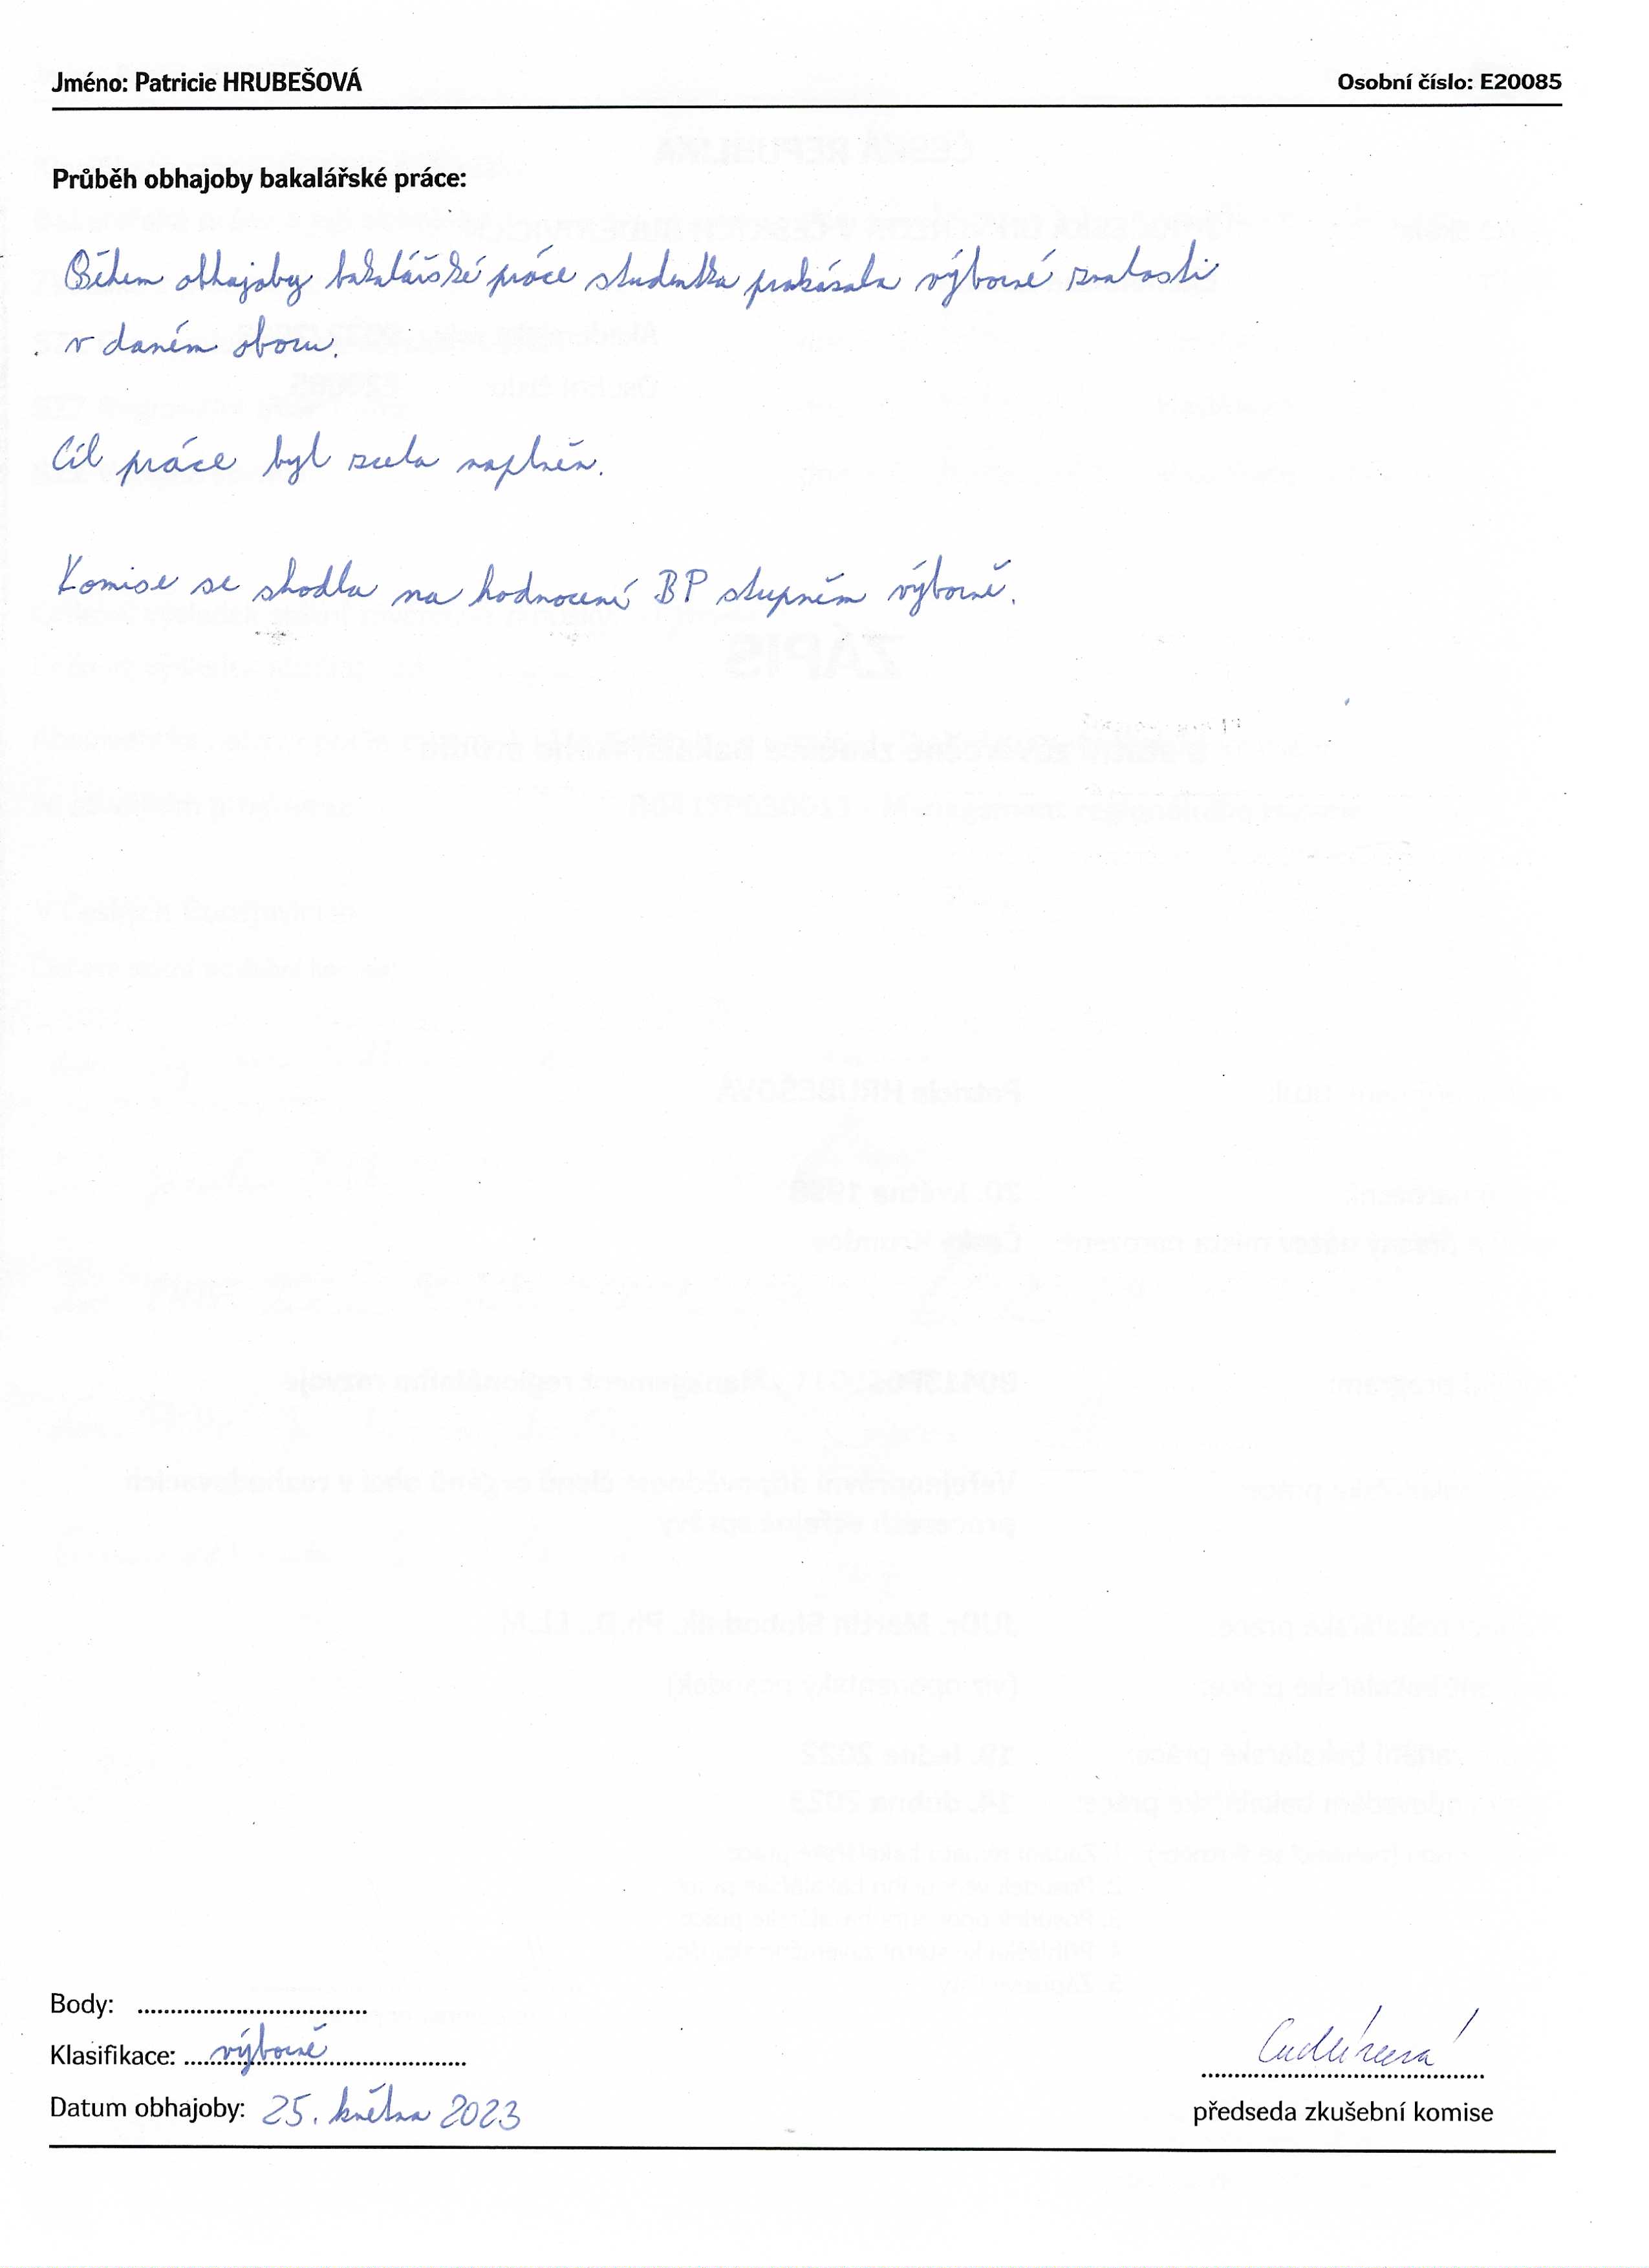 Jméno: Patricie HRUBEŠOVÁ
Osobní číslo: E20085
Průběh obhajoby bakalářské práce:
Během obhajoby bakalářské práce studentka prokázala výborné znalosti
v daném oboru.
Cíl práce byl zcela naplněn.
Komise se shodla na hodnocení BP stupněm výborně.
Body: ........................................
Klasifikace: výborně
Datum obhajoby: 25. května 2023
předseda zkušební komise